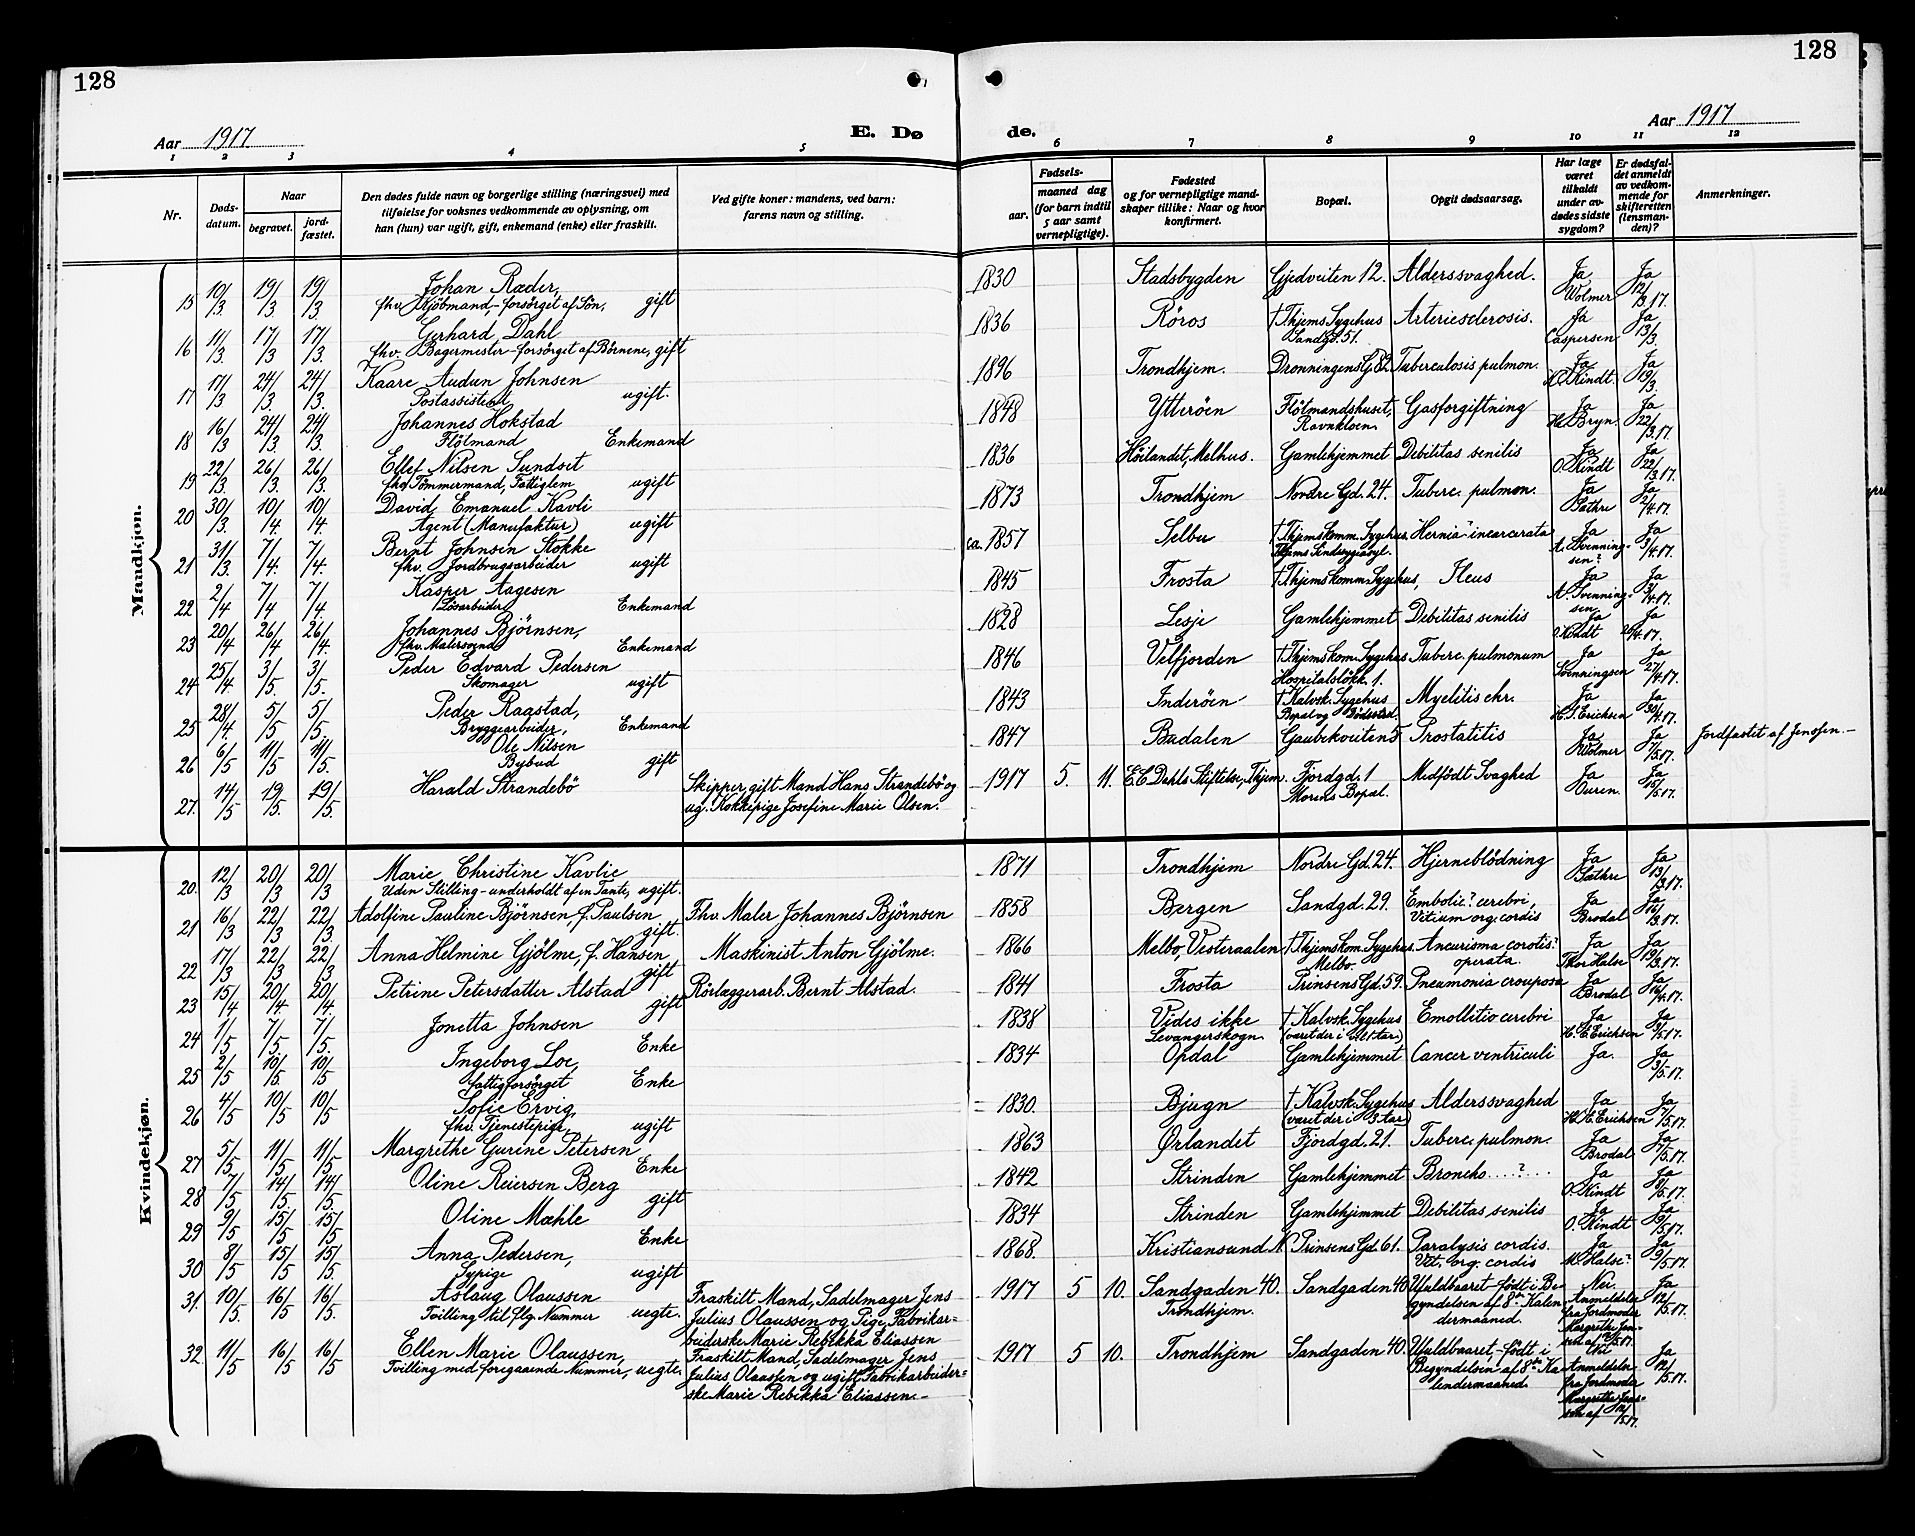 128
128
Aar 1917.
E. Dø
de.
Aar 1917
1 2 3 4 5 6 7 8 9 10 11 12
Nr.
Døds-
datum.
Naar
begravet.
jord-
fæstet.
Den dødes fulde navn og borgerlige stilling (næringsvei) med
tilføielse for voksnes vedkommende av oplysning, om
han (hun) var ugift, gift, enkemand (enke) eller fraskilt.
Ved gifte koner: mandens, ved barn:
farens navn og stilling.
Fødsels-
aar.
maaned dag
(for barn indtil
5 aar samt
vernepligtige).
Fødested
og for vernepligtige mand-
skaper tillike: Naar og hvor
konfirmert.
Bopæl.
Opgit dødsaarsag.
Har læge
været
tilkaldt
under av-
dødes sidste
sygdom?
Er dødsfal-
det anmeldt
av vedkom-
mende for
skifteretten
(lensman-
den)?
Anmerkninger.
Mandkjøn.
15 10/3. 19/3 19/3 Johan Ræder, 1830 Stadsbygden Gjedveiten 12. Alderssvaghed. Ja Ja
fhv. Kjøbmand,- forsørget af Søn, gift Wolmer 12/3.17.
16 11/3. 17/3 17/3. Gerhard Dahl 1836 Röros † Thjems Sygehus Arteriesclerosis. Ja Ja
fhv. Bagermester- forsørget af Børnene, gift Sandgd. 51. Caspersen 13/3.
17 17/3 24/3. 24/3. Kaare Audun Johnsen 1896 Trondhjem. Dronningens G. 82 Tuberculosis pulmon. Ja Ja
Postassistent, ugift. O. Kindt. 19/3.
18 16/3 24/3. 24/3 Johannes Hokstad 1848 Ytterøen Fløtmandshuset, Gasforgiftning Ja Ja
Fløtmand Enkemand Ravnkloen. H. Bryn. 22/3.17.
19 22/3 26/3. 26/3. Ellef Nilsen Sundset 1836 Höilandet, Melhus. Gamlehjemmet Debilitas senilis Ja Ja
fhv. Tømmermand, Fattiglem ugift O. Kindt 22/3.17.
20 30/3 10/4. 10/4. David Emanuel Kavli 1873 Trondhjem Nordre Gd. 24. Tuberc. pulmon. Ja Ja
Agent (Manufaktur) ugift Sæthre 2/4.17.
21 31/3. 7/4. 7/4. Bernt Johnsen Stokke ca. 1857 Selbu † Thjems komm. Sygehus, Hernia incarcerata Ja Ja
fhv. Jordbrugsarbeider ugift Thjems Sindssygeasyl. A. Svenning-sen? 3/4.17.
22 2/4 7/4 7/4 Kasper Aagesen 1845 Frosta † Thjems komm. Sygehus, Ileus Ja Ja
Løsarbeider Enkemand A. Svenning-sen 3/4.17.
23 20/4 26/4 26/4. Johannes Bjørnsen, 1828 Lesje Gamlehjemmet Debilitas senilis Ja Ja
fhv. Malersvend Enkemand O. Kindt 26/4.17.
24 25/4. 3/5. 3/5. Peder Edvard Pedersen 1846 Velfjorden † Thjems kom. Sygehus Tuberc. pulmonum Ja Ja
Skomager ugift Hospitalsløkk. 1. Svenningsen 27/4.17.
25 28/4. 5/5 5/5. Peder Raastad, 1843 Inderøen † Kalvsk. Sygehus Myelitis chr. Ja Ja
Bryggearbeider, Enkemand Bopæl og Dødssted. H. J. Erichsen 30/4.17.
26 6/5 11/5 11/5. Ole Nilsen 1847 Budalen Gaubekveiten 5 Prostatitis Ja Ja Jordfæstet af Jensen.-
Bybud gift Wolmer 7/5.17.
27. 14/5 19/5. 19/5. Harald Strandebö Skipper, gift Mand Hans Strandebö og 1917 5. 11. E. C. Dahls Stiftelse, Thjem. Fjordgd. 1 Medfødt Svaghed Ja Ja
ug. Kokkepige Josefine Marie Olsen. Morens Bopæl. Ouren. 15/5.17.
Kvindekjøn.
20. 12/3 20/3 20/3 Marie Christine Kavlie 1871 Trondhjem Nordre Gd. 24. Hjerneblödning Ja Ja
Uden Stilling - underholdt af en Tante, ugift. Sæthre 13/3.17.
21 16/3 22/3 22/3 Adolfine Pauline Bjørnsen, f. Paulsen Fhv. Maler Johannes Bjørnsen 1858 Bergen Sandgd. 29. Embolie? cerebri, Ja Ja
gift. Vitium org. cordis Brodal 16/3.17.
22 17/3 22/3 22/3 Anna Helmine Gjølme, f. Hansen Maskinist Anton Gjølme. 1866 Melbo, Vesteraalen † Thjems kom. Sygehus. Aneurisma carotis? Ja Ja
gift Melbo. operata. Thor Halse 19/3.17.
23 15/4 20/4. 20/4. Petrine Petersdatter Alstad Rörlæggerarb. Bernt Alstad. 1841 Frosta Prinsens Gd. 59. Pneumonia crouposa Ja Ja
gift Brodal 16/4.17.
24 1/5 7/5 7/5 Jonetta Johnsen 1838 Vides ikke † Kalvsk. Sygehus Emollitio cerebri Ja Ja
Enke Levangerskogn. H. E. Erichsen 3/5.17.
25 2/5 10/5. 10/5 Ingeborg Loe, 1834 Opdal Gamlehjemmet Cancer ventriculi Ja. Ja
fattigforsørget Enke 3/5.17.
26 4/5 10/5 10/5 Sofie Ervig, 1830. Bjugn † Kalvsk. Sygehus Alderssvaghed Ja Ja
fhv. Tjenestepige, ugift (været der i 3 Aar) H. E. Erichsen 7/5.17.
27 5/5 11/5 11/5 Margrethe Gurine Petersen 1863 Ørlandet Fjordgd. 21. Tuberc. pulmon. Ja Ja
Enke Brodal 7/5.17.
28 7/5 14/5. 14/5. Oline Reiersen Berg 1842 Strinden Gamlehjemmet Broncho....?... Ja Ja
gift O. Kindt 8/5.17.
29 9/5 15/5 15/5 Oline Mæhle 1834 Strinden Gamlehjemmet Debilitas senilis Ja Ja
Enke O. Kindt 9/5.17.
30 8/5 15/5 15/5. Anna Pedersen, 1868. Kristiansund N. Prinsens Gd. 61. Paralysis cordis. Ja Ja
Sypige ugift Vit. org. cordis M. Halse? 9/5.17.
31. 10/5. 16/5 16/5. Aslaug Olaussen Fraskilt Mand, Sadelmager Jens 1917 5 10. Sandgaden 40. Sandgaden 40. Uuldbaaret - født i Be- Nei Ja
Tvilling til flg. Nummer uegte. Julius Olaussen og Pige, Fabrikar- Trondhjem. gyndelsen af 8de Kalen- Anmeldelse 12/5.17.
beiderske Marie Rebekka Eliassen dermaaned. fra Jordmoder
32 11/5 16/5 16/5 Ellen Marie Olaussen, Fraskilt Mand, Sadelmager Jens 1917 5 10. Trondhjem Sandgaden 40. Uuldbaaret - født i Nei Ja
Tvilling med foregaaende Nummer, uegte. Julius Olaussen og ugift Fabrikarbeider- Begyndelsen af 8de Ka- Anmeldelse 12/5.17.
ske Marie Rebekka Eliassen.- lendermaaned. fra Jordmoder